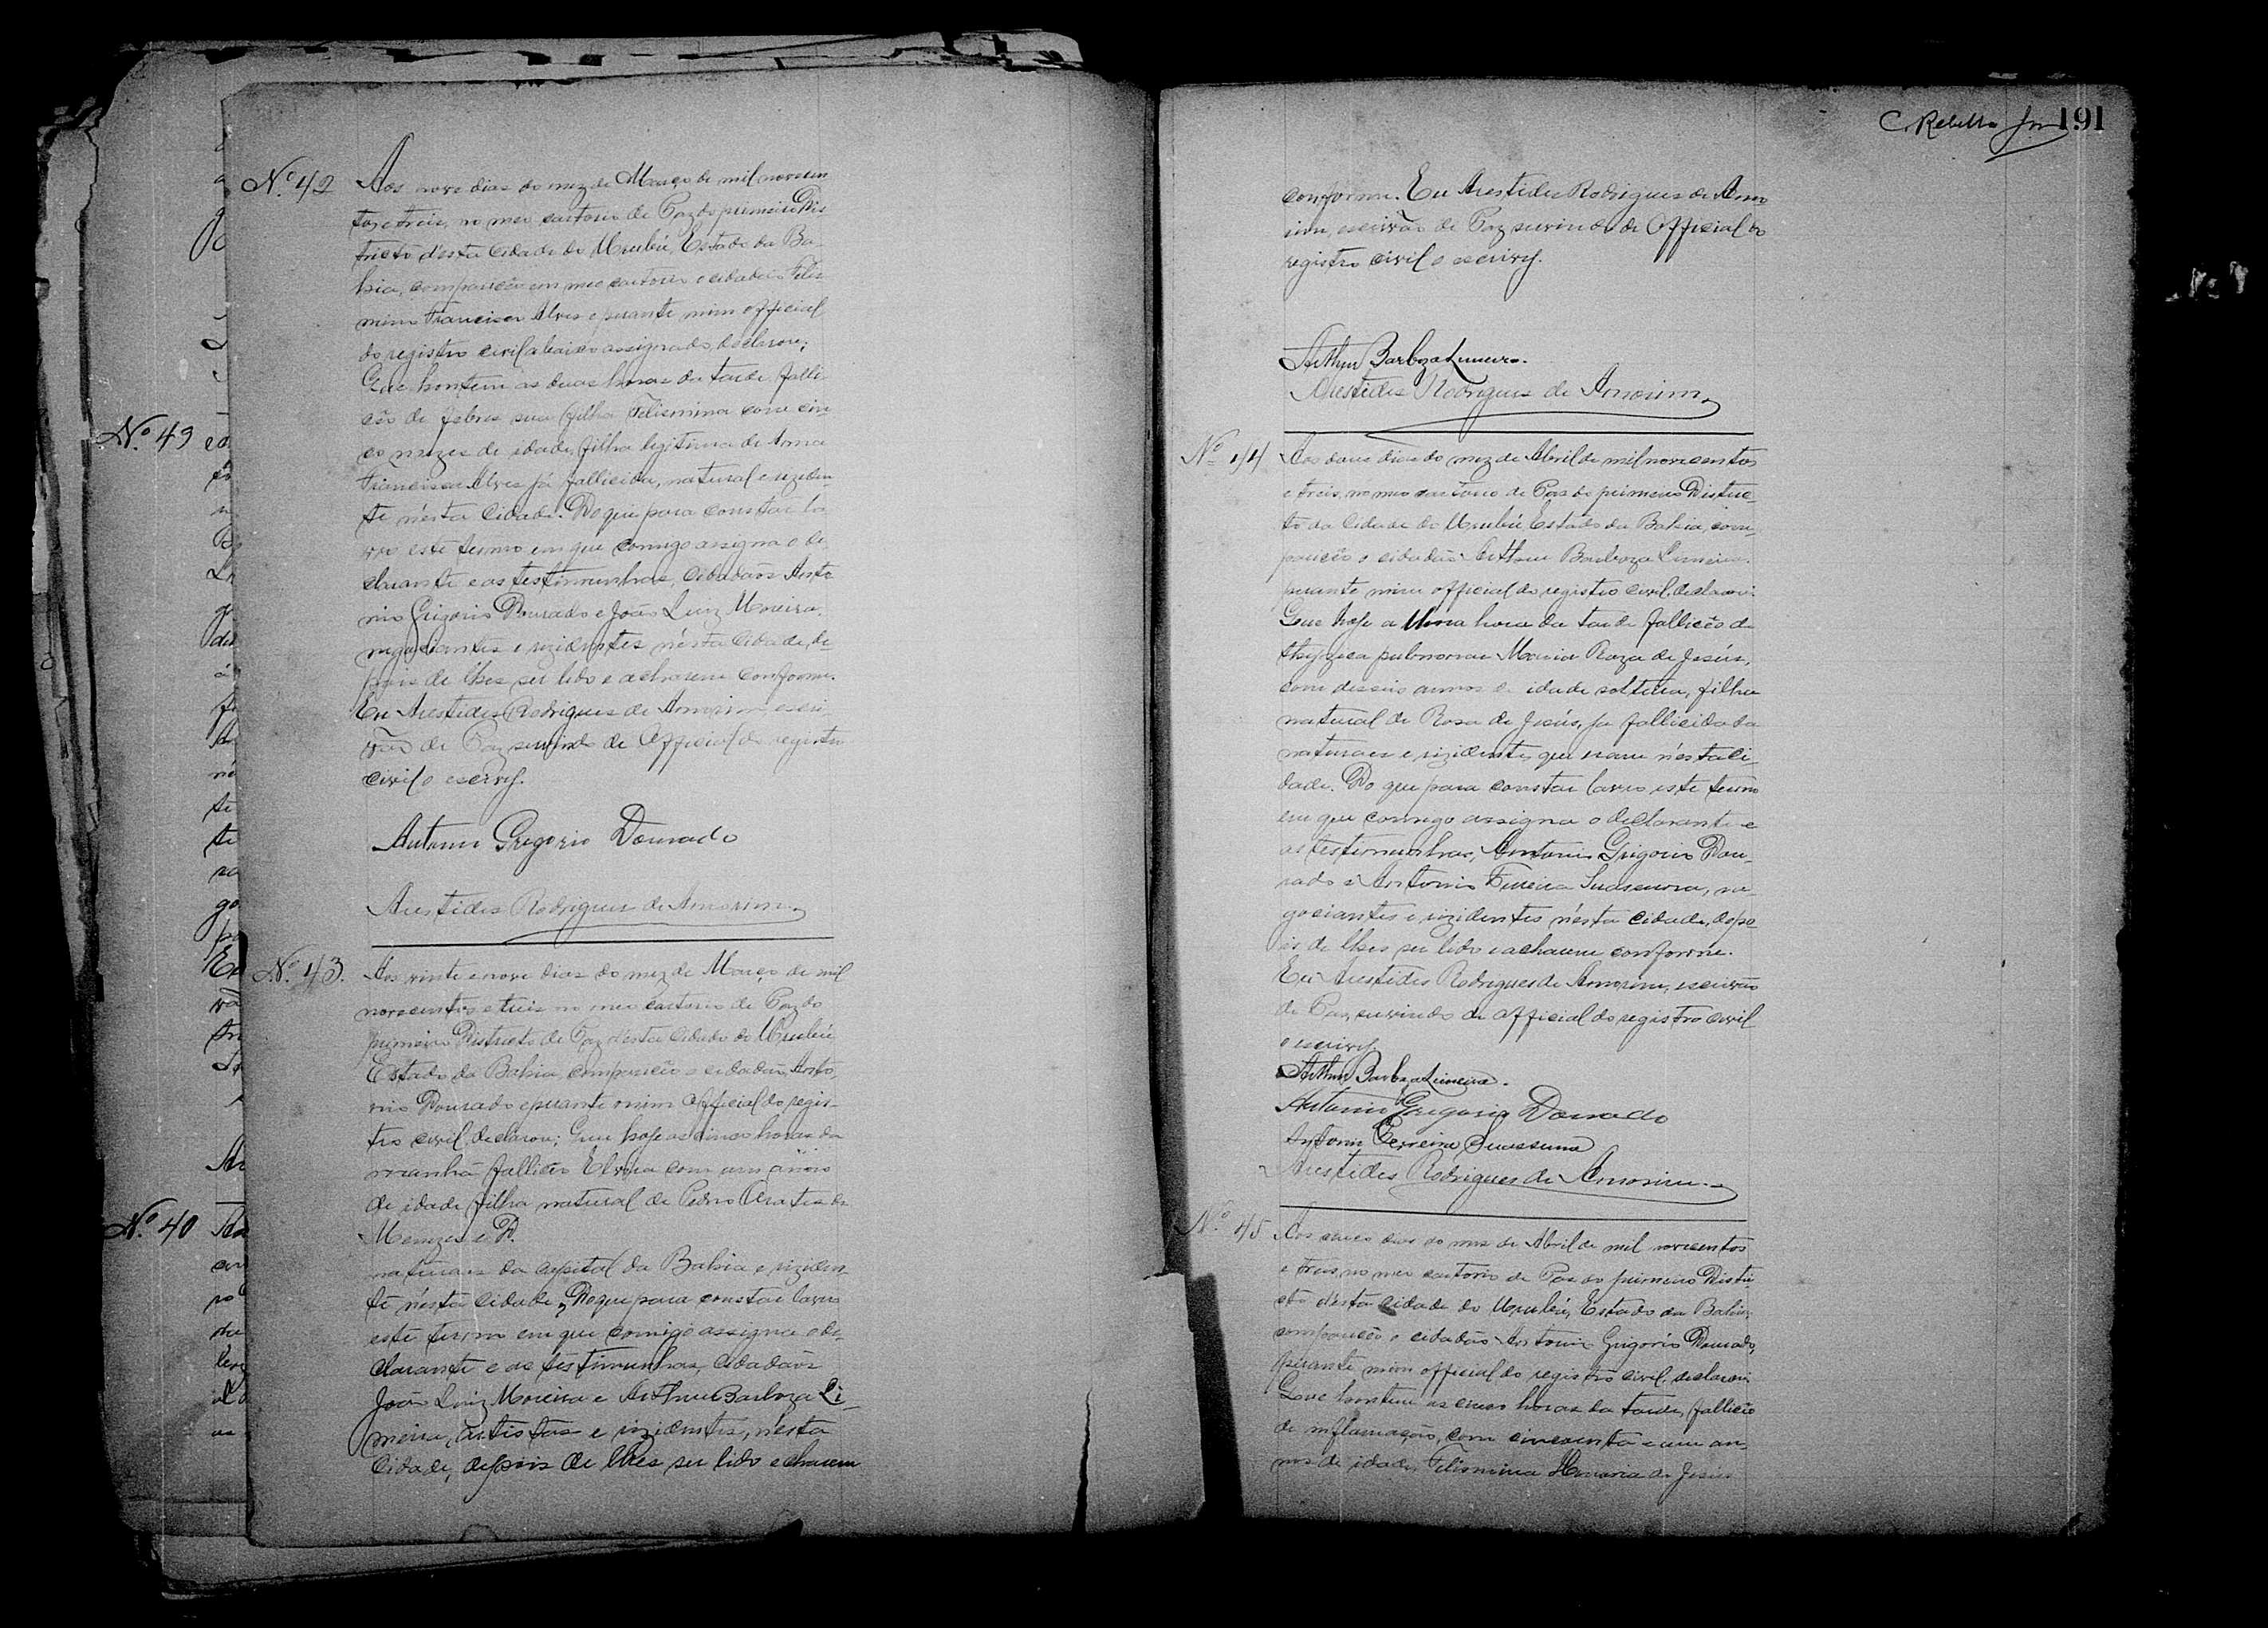 Nº 42 Aos nove dias do mez de Março de mil novecen
tos e treis, no meo cartorio de Paz do primeiro Dis
tricto d'esta Cidade do Urubú, Estado da Ba-
hia, compareceo em meo cartorio o cidadão Felis-
mino Francisco Alves e perante mim official
do registro civil abaixo assignado, declarou;
Que hontem as duas horas da tarde falle
ceo de febres sua filha Felismina com cin
co mezes de idade, filha legitima de Anna
Francisca Alves já fallicida, natural e reziden
te n'esta Cidade. Do que para constar la
vro este termo em que comigo assigna o de
clarante e as testimunhas, Cidadãos Anto
nio Grigorio Dourado e João Luiz Moreira,
negociantes e rezidentes n'esta Cidade, de
pois de lhes ser lido e acharem conforme.
Eu Arestides Rodrigues de Amorim escri
vão de Paz servindo de Official do registro
civil o escrevy.
Antonio Gregorio Dourado
Arestides Rodrigues de Amorim
Nº 43. Aos vinte e nove dias do mez de Março de mil
novecentos e treis no meo Cartorio de Paz do
primeiro Districto de Paz d'esta Cidade do Urubú
Estado da Bahia, compareceo o cidadão Anto
nio Dourado e perante mim Official do regis-
tro civil, declarou; Que hoje as cinco horas da
manhã falleceo com um
de idade filha natural de Pedro de
Menezes e D.
naturaes da Capital da Bahia e reziden
te n'esta Cidade, Do que para constar lavro
este termo em que comigo assigna o de-
clarante e as testimunhas, Cidadãos
João Luiz Moreira e Arthur Barboza Li-
meira, artistas e rezidentes, n'esta
Cidade, depois de lhes ser lido e acharem
C. Rebello Jor 191
conforme. Eu Arestides Rodrigues de Amo
rim, escrivão de Paz servindo de Official do
registro civil o escrevy.
Arthur Barboza Limeira.
Arestides Rodrigues de Amorim
Nº 44 Aos doze dias do mez de Abril de mil novecentos
e treis, no meo cartorio de Paz do primeiro Distric-
to da Cidade do Urubú Estado da Bahia, com
pareceo o cidadão Arthur Barboza Limeira
perante mim official do registro civil, declarou:
Que hoje a Uma hora da tarde falleceo de
pulmonar Maria Roza de Jesús,
com deseis annos de idade solteira, filha
natural de Rosa de Jesús, já fallicida
naturaes e rezidentes que eram n'esta Ci-
dade. Do que para constar lavro este termo
em que comigo assigna o declarante e
as testimunhas, Antonio Grigorio Dou-
rado e Antonio Ferreira Suassuna, ne
gociantes e rezidentes n'esta Cidade, depo
is de lhes ser lido e acharem conforme.
Eu Arestides Rodrigues de Amorim, escrivão
de Paz servindo de official do registro civil
o escrevy.
Arthur Barboza Limeira.
Antonio Gregorio Dourado
Antonio Ferreira Suassuna
Arestides Rodrigues de Amorim
Nº 45 Aos dias do mez de Abril de mil novecentos
e treis, no meo cartorio de Paz do primeiro Distri
cto d'esta Cidade do Urubú, Estado da Bahia,
compareceo o cidadão Antonio Grigorio Dourado,
perante mim official do registro civil, declarou;
Que hontem as cinco horas da tarde, falleceo
de inflamação, com cincoenta e um an-
nos de idade, Felismina Maria de Jesús
Nº 49
Nº 40